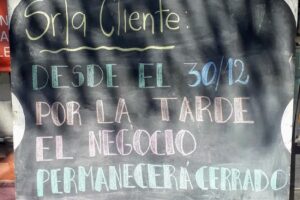 Sr/a Cliente:
DESDE EL 30/12
POR LA TARDE
EL NEGOCIO
PERMANECERÁ CERRADO